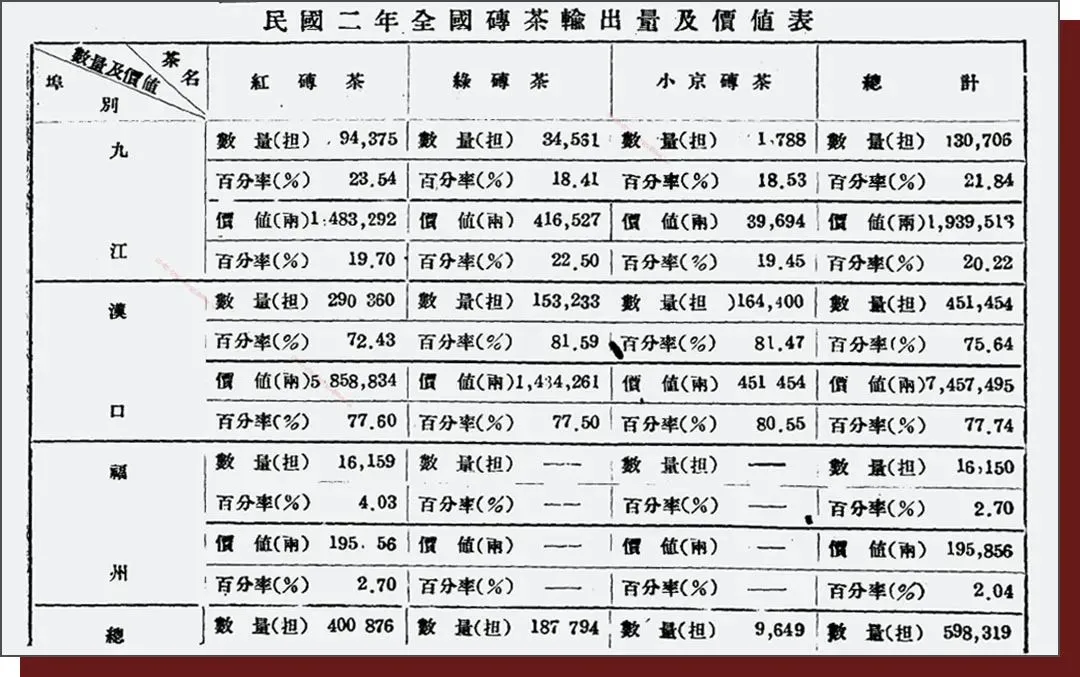 民國二年全國磚茶輸出量及價值表
茶名
數量及價值
埠別
紅磚茶 綠磚茶 小京磚茶 總計
九江
數量(担) 94,375 數量(担) 34,561 數量(担) 1,788 數量(担) 130,706
百分率(%) 23.54 百分率(%) 18.41 百分率(%) 18.53 百分率(%) 21.84
價值(兩)1,483,292 價值(兩) 416,527 價值(兩) 39,694 價值(兩)1,939,513
百分率(%) 19.70 百分率(%) 22.50 百分率(%) 19.45 百分率(%) 20.22
漢口
數量(担) 290 360 數量(担) 153,233 數量(担)164,400 數量(担) 451,454
百分率(%) 72.43 百分率(%) 81.59 百分率(%) 81.47 百分率(%) 75.64
價值(兩)5 858,834 價值(兩)1,434,261 價值(兩) 451 454 價值(兩)7,457,495
百分率(%) 77.60 百分率(%) 77.50 百分率(%) 80.55 百分率(%) 77.74
福州
數量(担) 16,159 數量(担) —— 數量(担) —— 數量(担) 16,150
百分率(%) 4.03 百分率(%) —— 百分率(%) —— 百分率(%) 2.70
價值(兩) 195. 56 價值(兩) —— 價值(兩) —— 價值(兩) 195,856
百分率(%) 2.70 百分率(%) —— 百分率(%) —— 百分率(%) 2.04
總
數量(担) 400 876 數量(担) 187 794 數量(担) 9,649 數量(担) 598,319